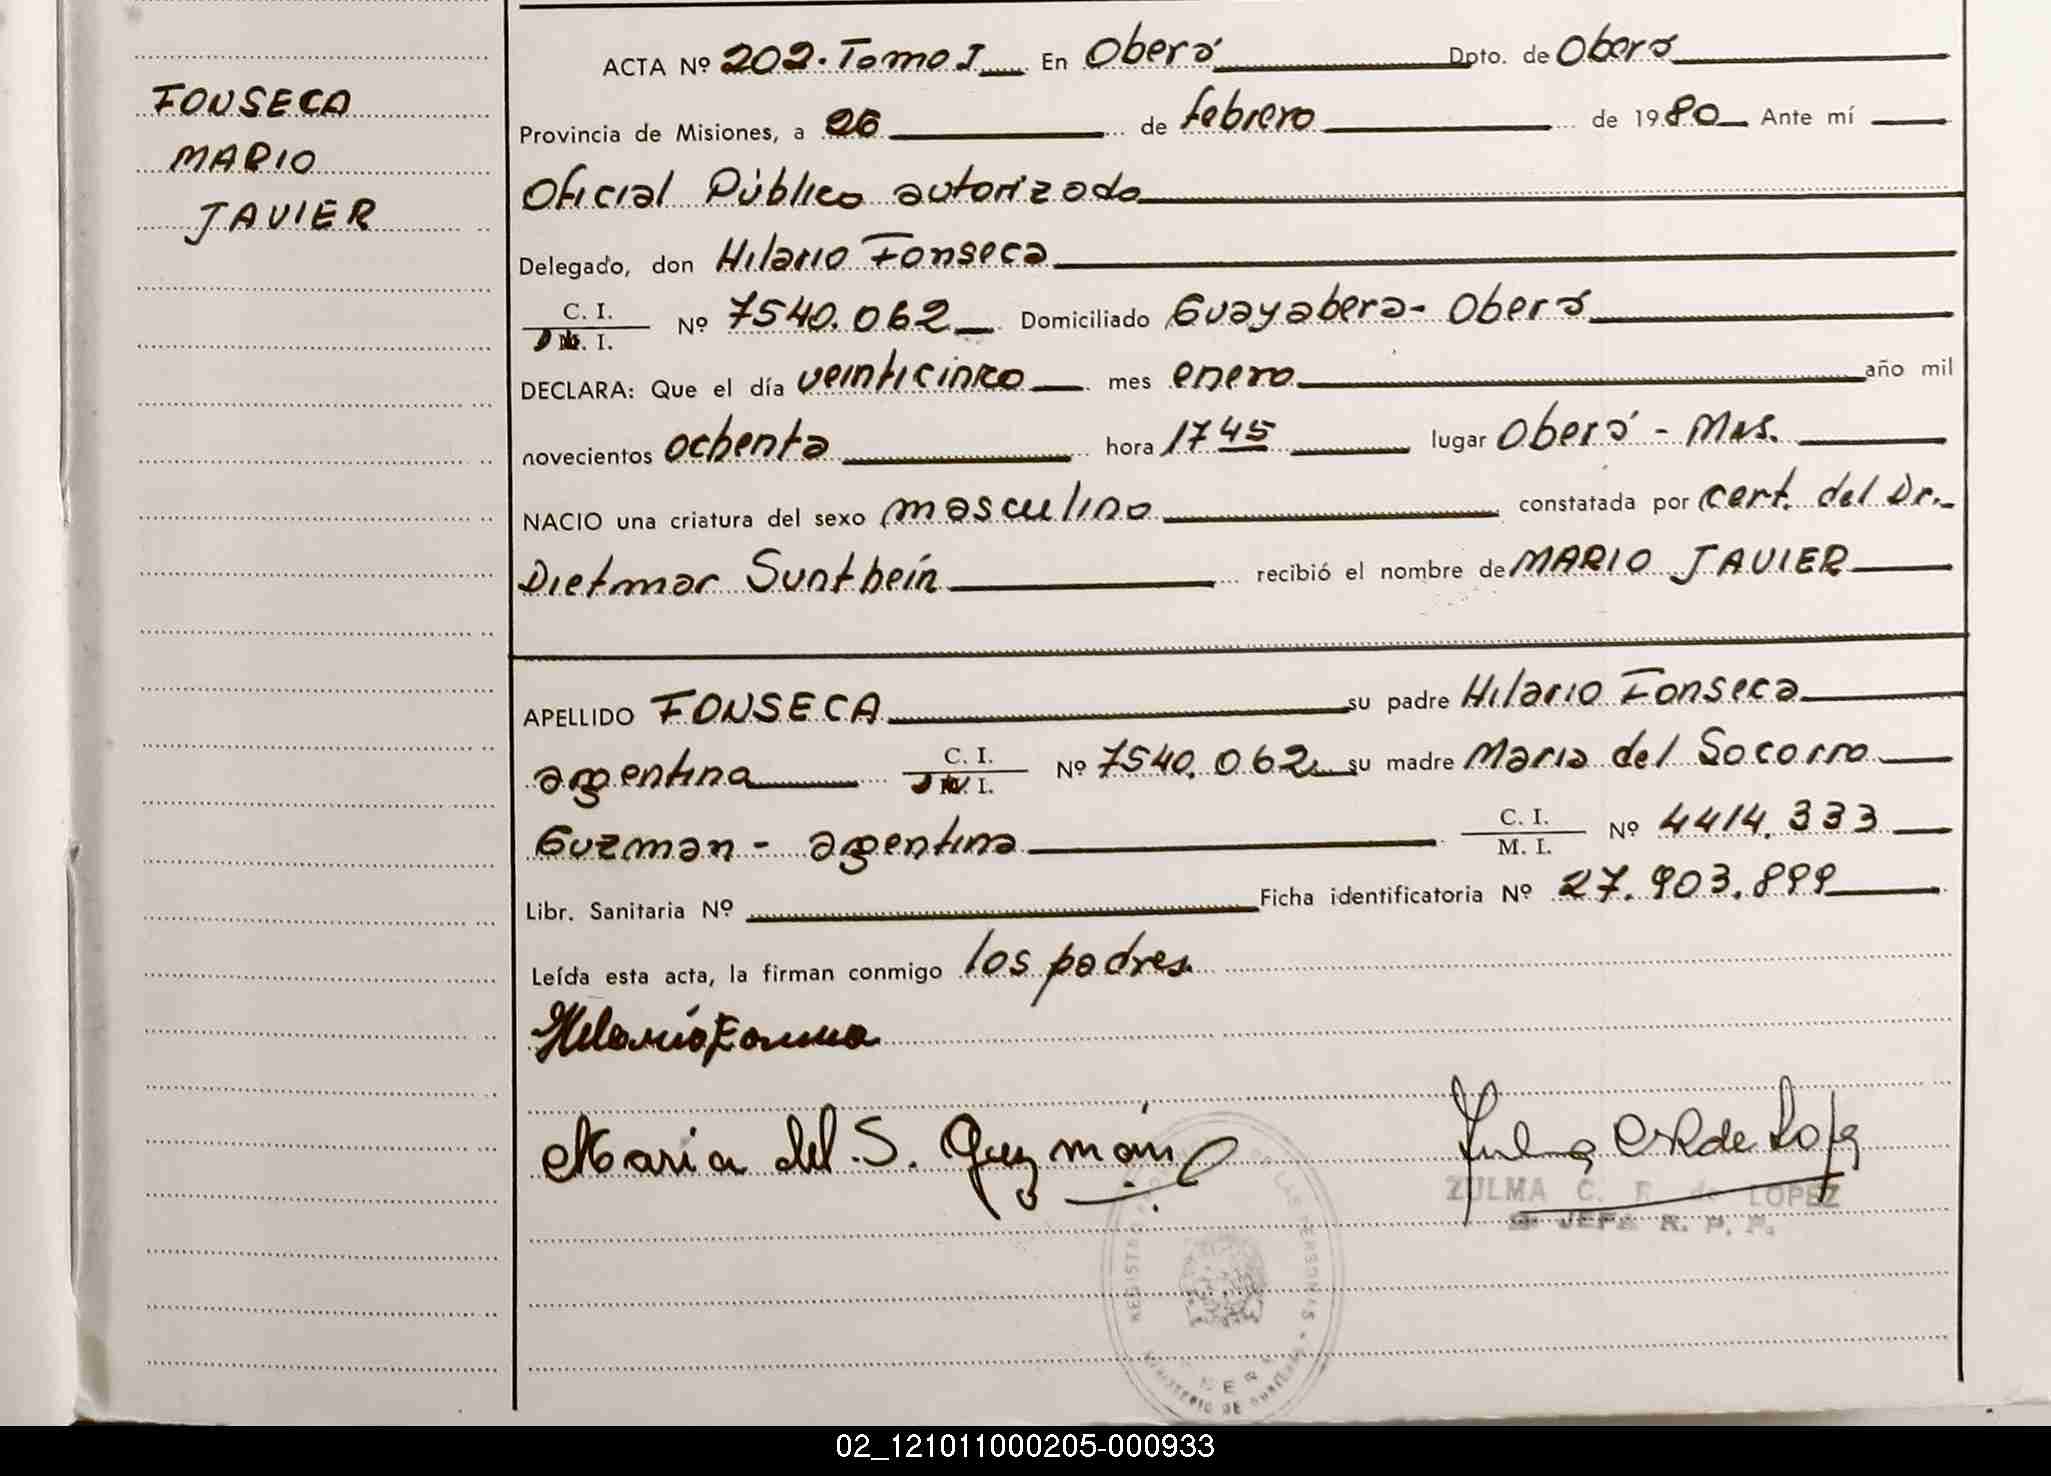 FONSECA
MARIO
JAVIER
ACTA Nº 202. Tomo I En Oberá Dpto. de Oberá
Provincia de Misiones, a 26 de febrero de 1980 Ante mí
Oficial Público autorizado
Delegado, don Hilario Fonseca
C. I.
M. I. Nº 7540.062 Domiciliado Guayabera - Oberá
DECLARA: Que el día veinticinco mes enero año mil
novecientos ochenta hora 1745 lugar Oberá - Mns.
NACIO una criatura del sexo masculino constatada por cert. del Dr.
Dietmar Suntbein recibió el nombre de MARIO JAVIER
APELLIDO FONSECA su padre Hilario Fonseca
argentina C. I. M. I. Nº 7540.062 su madre Maria del Socorro
Guzman - argentina C. I. M. I. Nº 4414.333
Libr. Sanitaria Nº Ficha identificatoria Nº 27.903.899
Leída esta acta, la firman conmigo los padres.
Hilario Fonseca
Maria del S. Guzmán
ZULMA C. R. de LOPEZ
JEFA R. P. P.
REGISTRO DE LAS PERSONAS
MINISTERIO DE
02_121011000205-000933